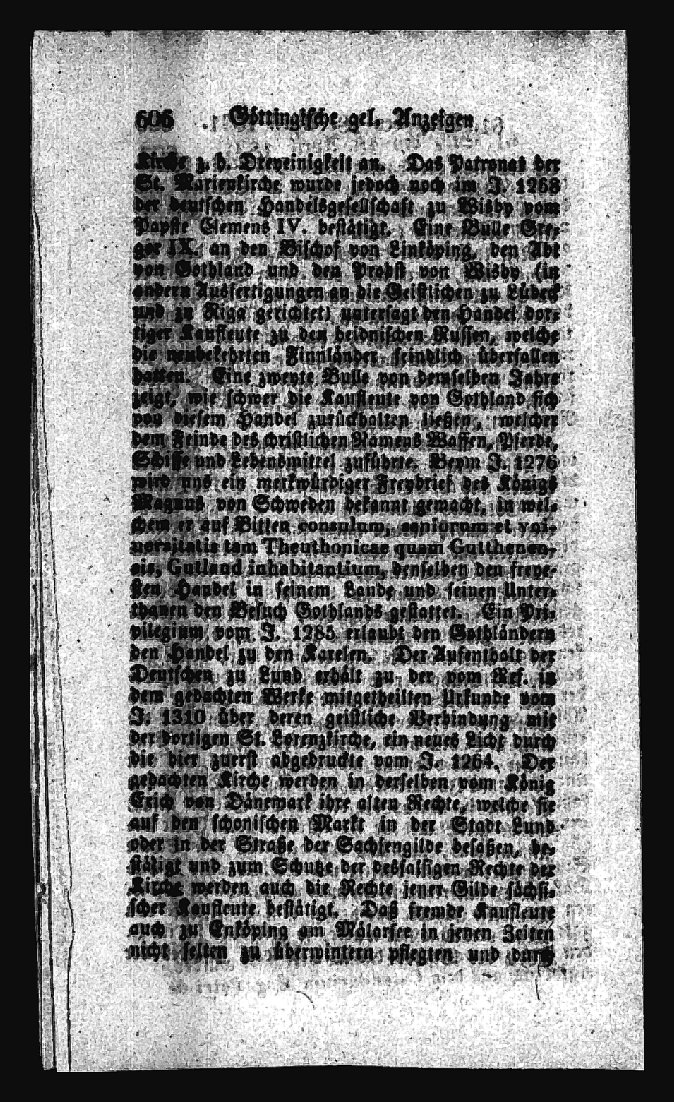 606 Göttingische gel. Anzeigen
Kirche z. h. Dreyeinigkeit an. Das Patronat der
St. Marienkirche wurde jedoch noch im J. 1268
der deutschen Handelsgesellschaft zu Wisby vom
Papste Clemens IV. bestätigt. Eine Bulle Gre-
gor IX. an den Bischof von Linköping, den Abt
von Gothland und den Probst von Wisby (in
andern Ausfertigungen an die Geistlichen zu Lübeck
und zu Riga gerichtet) untersagt den Handel dor-
tiger Kaufleute zu den heidnischen Russen, welche
die neubekehrten Finnländer feindlich überfallen
hatten. Eine zweyte Bulle von demselben Jahre
zeigt, wie schwer die Kaufleute von Gothland sich
von diesem Handel zurückhalten ließen, welcher
dem Feinde des christlichen Namens Waffen, Pferde,
Schiffe und Lebensmittel zuführte. Beym J. 1276
wird uns ein merkwürdiger Freybrief des Königs
Magnus von Schweden bekannt gemacht, in wel-
chem er auf Bitten consulum, seniorum et vni-
uersitatis tam Theuthonicae quam Gutthenen-
sis, Gutland inhabitantium, denselben den freye-
sten Handel in seinem Lande und seinen Unter-
thanen den Besuch Gothlands gestattet. Ein Pri-
vilegium vom J. 1285 erlaubt den Gothländern
den Handel zu den Karelen. Der Aufenthalt der
Deutschen zu Lund erhält zu der vom Ref. in
dem gedachten Werke mitgetheilten Urkunde vom
J. 1310 über deren geistliche Verbindung mit
der dortigen St. Lorenzkirche, ein neues Licht durch
die hier zuerst abgedruckte vom J. 1264. Der
gedachten Kirche werden in derselben vom König
Erich von Dänemark ihre alten Rechte, welche sie
auf den schonischen Markt in der Stadt Lund
oder in der Straße der Sachsengilde besaßen, be-
stätigt und zum Schutze der desfalsigen Rechte der
Kirche werden auch die Rechte jener Gilde sächsi-
scher Kaufleute bestätigt. Daß fremde Kaufleute
auch zu Enköping am Mälarsee in jenen Zeiten
nicht selten zu überwintern pflegten und durch